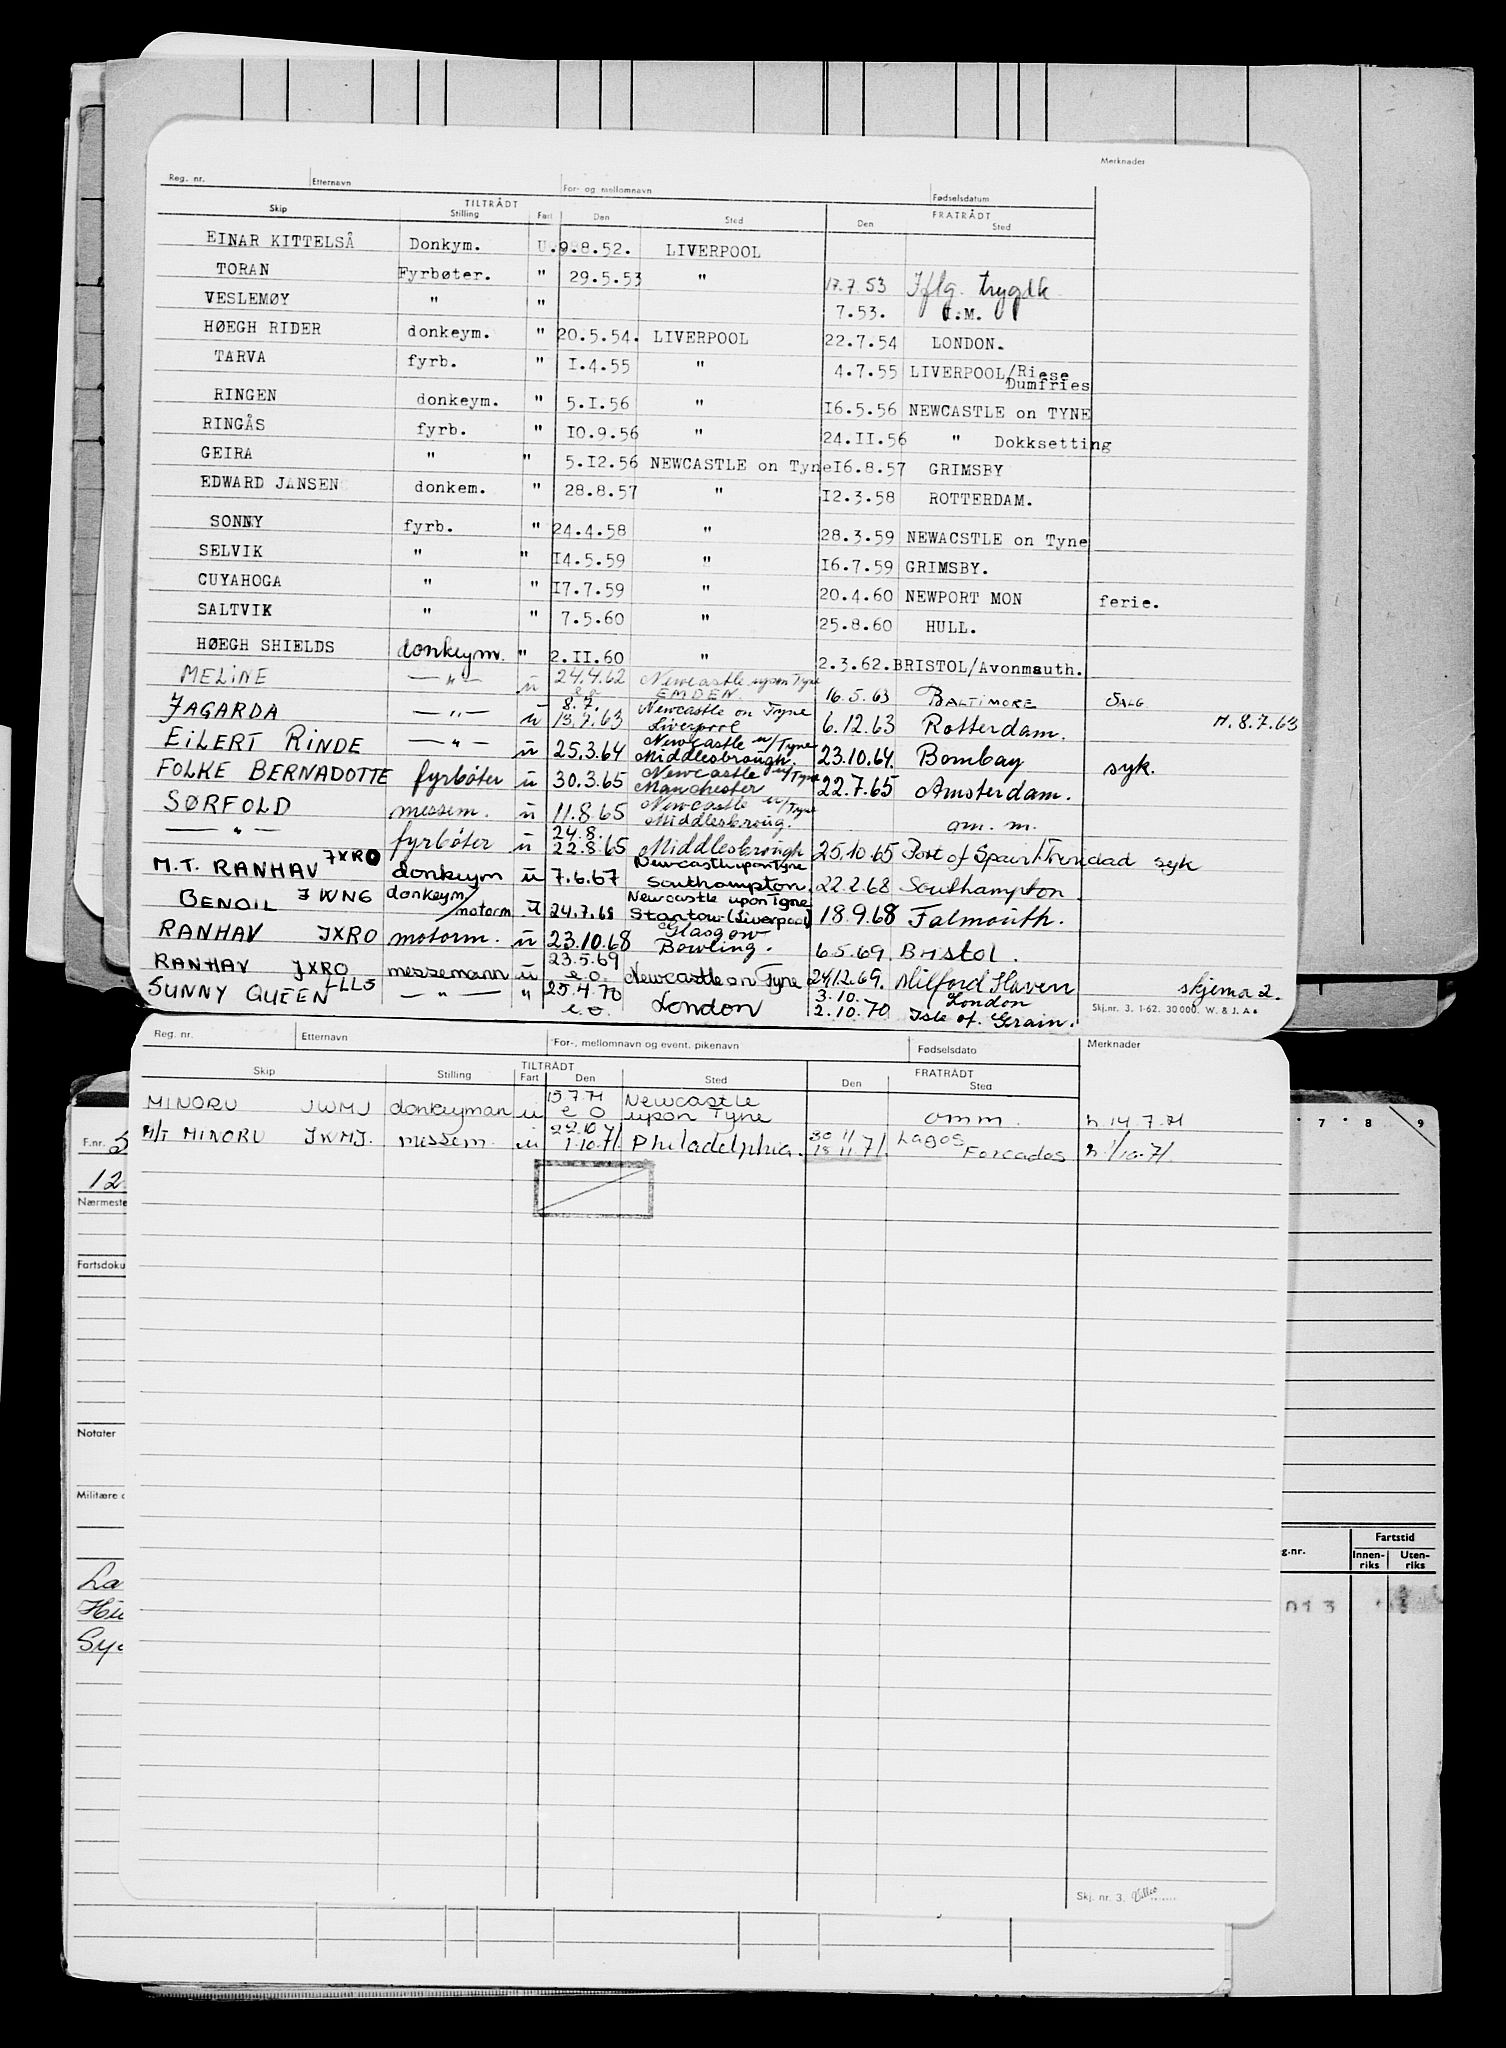 Merknader
Reg. nr. Etternavn For- og mellomnavn Fødselsdatum
TILTRÅDT FRATRÅDT
Skip Stilling Fart Den Sted Den Sted
EINAR KITTELSÅ Donkym. U. 9.8.52. LIVERPOOL
TORAN Fyrbøter. " 29.5.53 " 17.7.53 Iflg. trygdk
VESLEMØY " " 7.53. O.M.
HØEGH RIDER donkeym. " 20.5.54. LIVERPOOL 22.7.54 LONDON.
TARVA fyrb. " I.4.55 " 4.7.55 LIVERPOOL/Riese
Dumfries
RINGEN donkeym. " 5.I.56 " I6.5.56 NEWCASTLE on TYNE
RINGÅS fyrb. " I0.9.56 " 24.II.56 " Dokksetting
GEIRA " " 5.I2.56 NEWCASTLE on Tyne I6.8.57 GRIMSBY
EDWARD JANSEN donkem. " 28.8.57 " I2.3.58 ROTTERDAM.
SONNY fyrb. " 24.4.58 " 28.3.59 NEWACSTLE on Tyne
SELVIK " " I4.5.59 " I6.7.59 GRIMSBY.
CUYAHOGA " " I7.7.59 " 20.4.60 NEWPORT MON ferie.
SALTVIK " " 7.5.60 " 25.8.60 HULL.
HØEGH SHIELDS donkeym. " 2.II.60 " 2.3.62. BRISTOL/Avonmauth.
MELINE — " — u 24.4.62 Newcastle upon Tyne
e.o. EMDEN. 16.5.63 BALTIMORE SALG
JAGARDA — " — u 8.7. Newcastle on Tyne
13.7.63 Liverpool 6.12.63 Rotterdam. H. 8.7.63
EILERT RINDE — " — u 25.3.64 Newcastle u/Tyne
Middlesbrough. 23.10.64. Bombay syk.
FOLKE BERNADOTTE fyrbøter u 30.3.65 Newcastle u/Tyne
Manchester 22.7.65 Amsterdam.
SØRFOLD messem. u 11.8.65 Newcastle u/Tyne
Middlesbroug. om. m.
— " — fyrbøter u 24.8.
22.8.65 Middlesbrough 25.10.65 Port of Spain/Trindad syk
M.T. RANHAV JXRO donkeym u 7.6.67 Newcastle upon Tyne
Southampton. 22.2.68 Southampton
BENOIL JWNG donkeym/motorm u 24.7.68 Newcastle upon Tyne
Stanlow (Liverpool) 18.9.68 Falmouth.
RANHAV JXRO motorm. u 23.10.68 Glasgow
Bowling. 6.5.69. Bristol.
RANHAV JXRO messemann u 23.5.69
e.o. Newcastle on Tyne 24.12.69. Milford Haven
SUNNY QUEEN LLLS — " — " 25.4.70
e.o. London 3.10. London
2.10.70 Isle of. Grain. skjema 2.
Skj.nr. 3. 1-62. 30000. W. & J. A s
Reg. nr. Etternavn For-, mellomnavn og event. pikenavn Fødselsdato Merknader
TILTRÅDT FRATRÅDT
Skip Stilling Fart Den Sted Den Sted
MINORU JWMJ donkeyman u 15.7.71 Newcastle
e o upon Tyne omm. h. 14.7.71
M/T MINORU JWMJ. messem. u 22.10
1.10.71. Philadelphia. 30 11 Lagos
18 11 71. Forcados h 1/10.71.
Skj. nr. 3.
F.nr.
12
Nærmeste
Fartsdoku
Notater
Militære
La
Sy
7 8 9
g.nr. Fartstid
Innen-riks Uten-riks
013